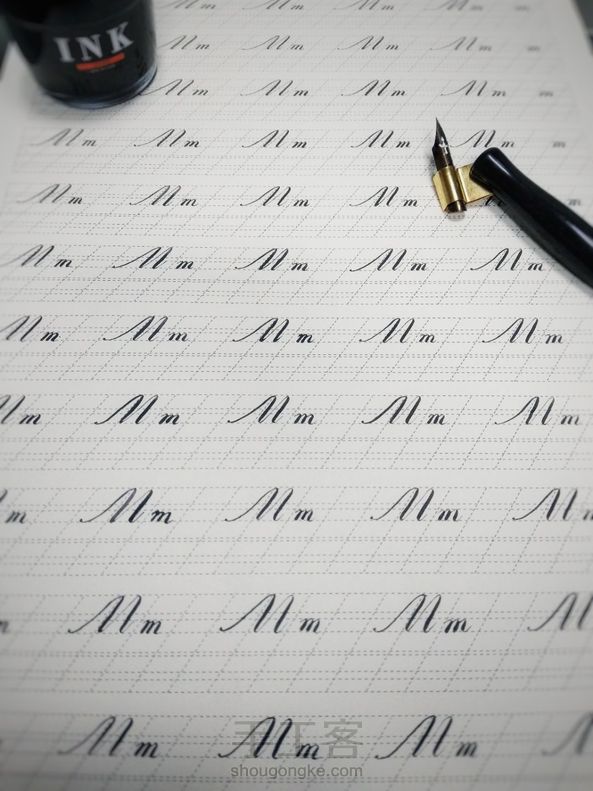 INK
M m M m M m M m m
M m M m M m M m m
M m M m M m M m M m m
M m M m M m M m
M m M m M m M m M m
M m M m M m M m M m
M m M m M m M m M m
m M m M m M m M m
m M m M m M m M
M m M m M m
手工客
shougongke.com